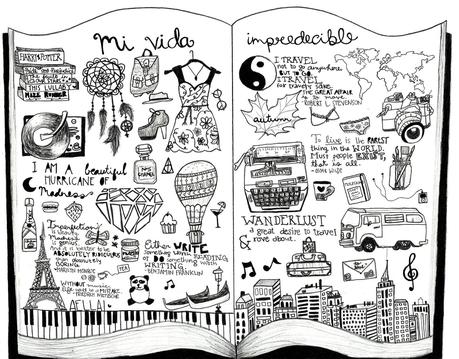 mi vida
impredecible
HARRY POTTER
THIS LULLABY
MAZE RUNNER
I TRAVEL
not to go anywhere
BUT TO GO.
I TRAVEL
for travel's sake.
THE GREAT AFFAIR
is to move.
ROBERT L. STEVENSON
autumn
To live is the RAREST
thing in the WORLD.
Most people EXIST,
that is all.
I AM A beautiful
HURRICANE OF
Madness
Imperfection
is beauty,
madness
is genius,
and it's better to be
ABSOLUTELY RIDICULOUS
than absolutely
BORING
MARILYN MONROE
TEA
WITHOUT MUSIC
LIFE WOULD BE A MISTAKE.
FRIEDRICH NIETZSCHE
Either WRITE
something worth READING
OR DO something worth
WRITING.
BENJAMIN FRANKLIN
WANDERLUST
a great desire to travel
& rove about.